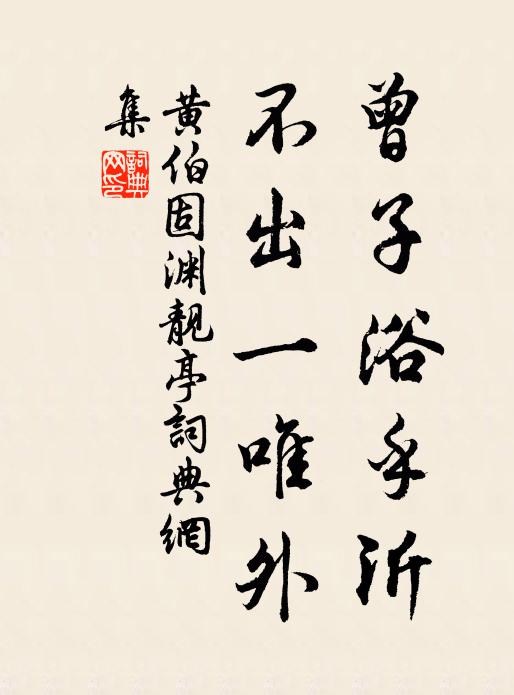 曾子浴乎沂
不出一唯外
黄伯固渊靓亭詞典網
集
詞典網印